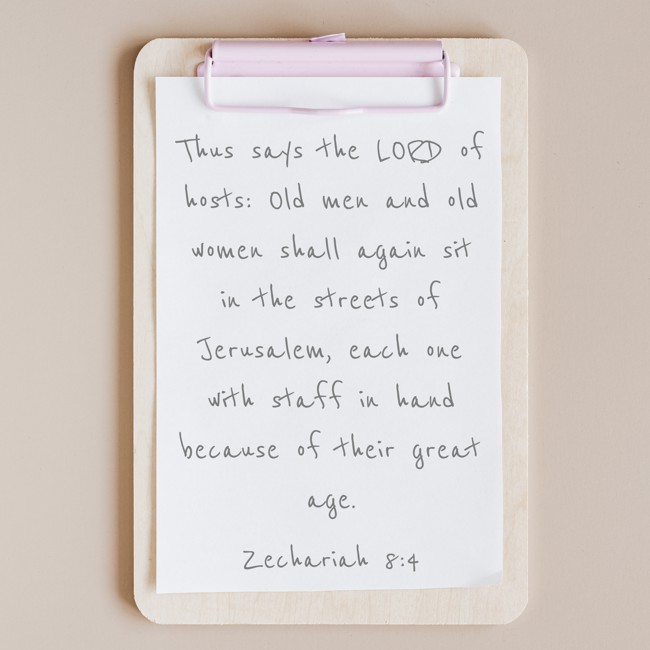 Thus says the LORD of
hosts: Old men and old
women shall again sit
in the streets of
Jerusalem, each one
with staff in hand
because of their great
age.
Zechariah 8:4